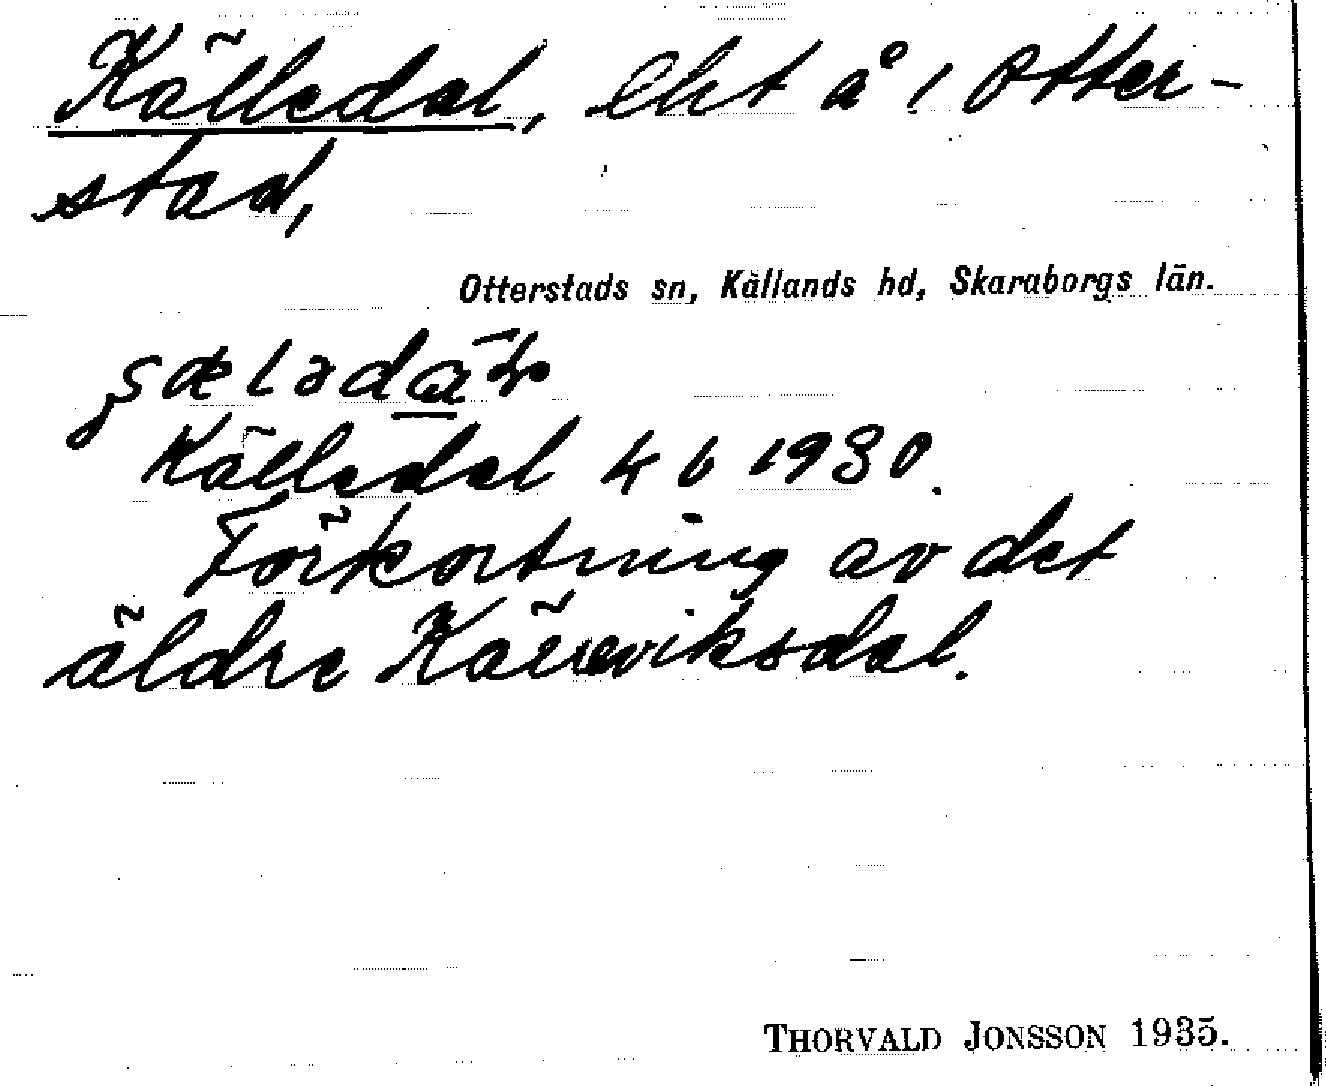 Källedal, lht å 1 Otter-
stad,
Otterstads sn, Kållands hd, Skaraborgs län.
Källedal 4 6 1930.
Förkortning av det
äldre Källeviksdal.
THORVALD JONSSON 1935.